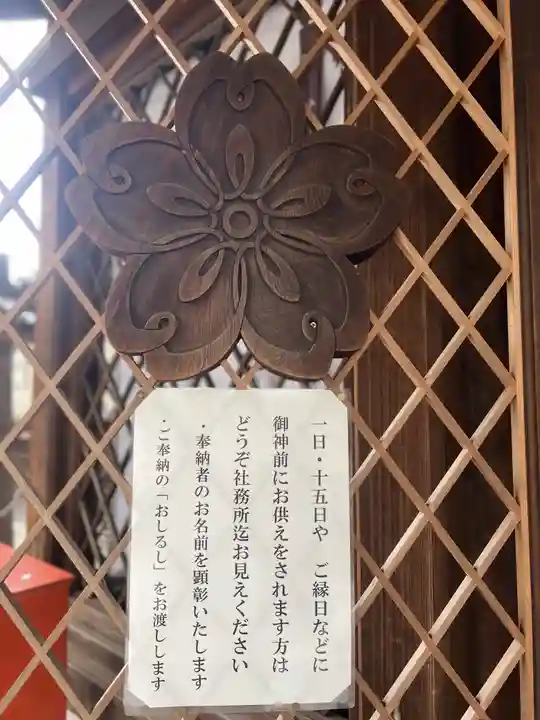 一日・十五日や　ご縁日などに
御神前にお供えをされます方は
どうぞ社務所迄お見えください
・奉納者のお名前を顕彰いたします
・ご奉納の「おしるし」をお渡しします